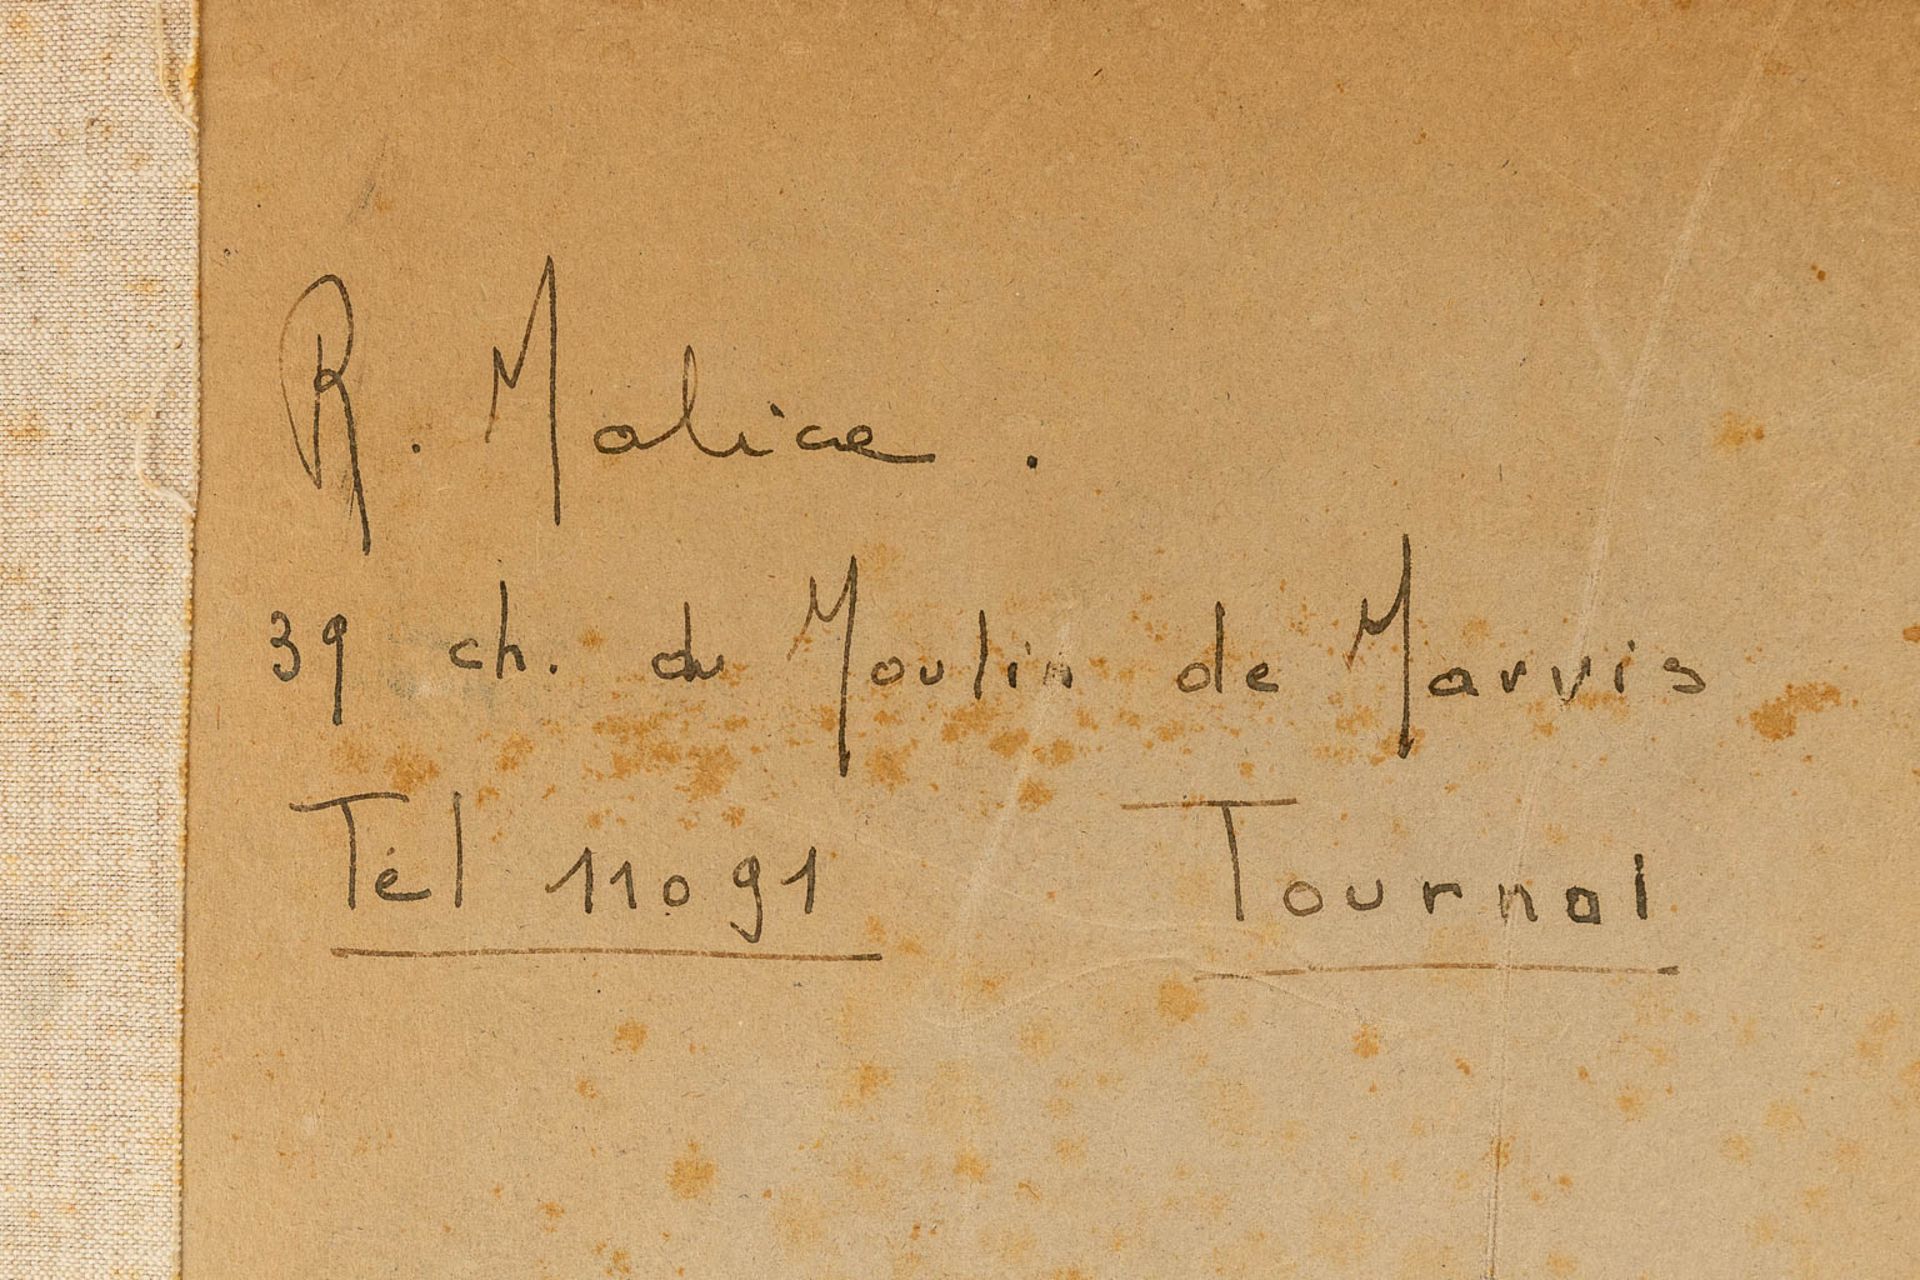 R. Malice.
39 ch. du Moulin de Marvis
Tél 11091 Tournai